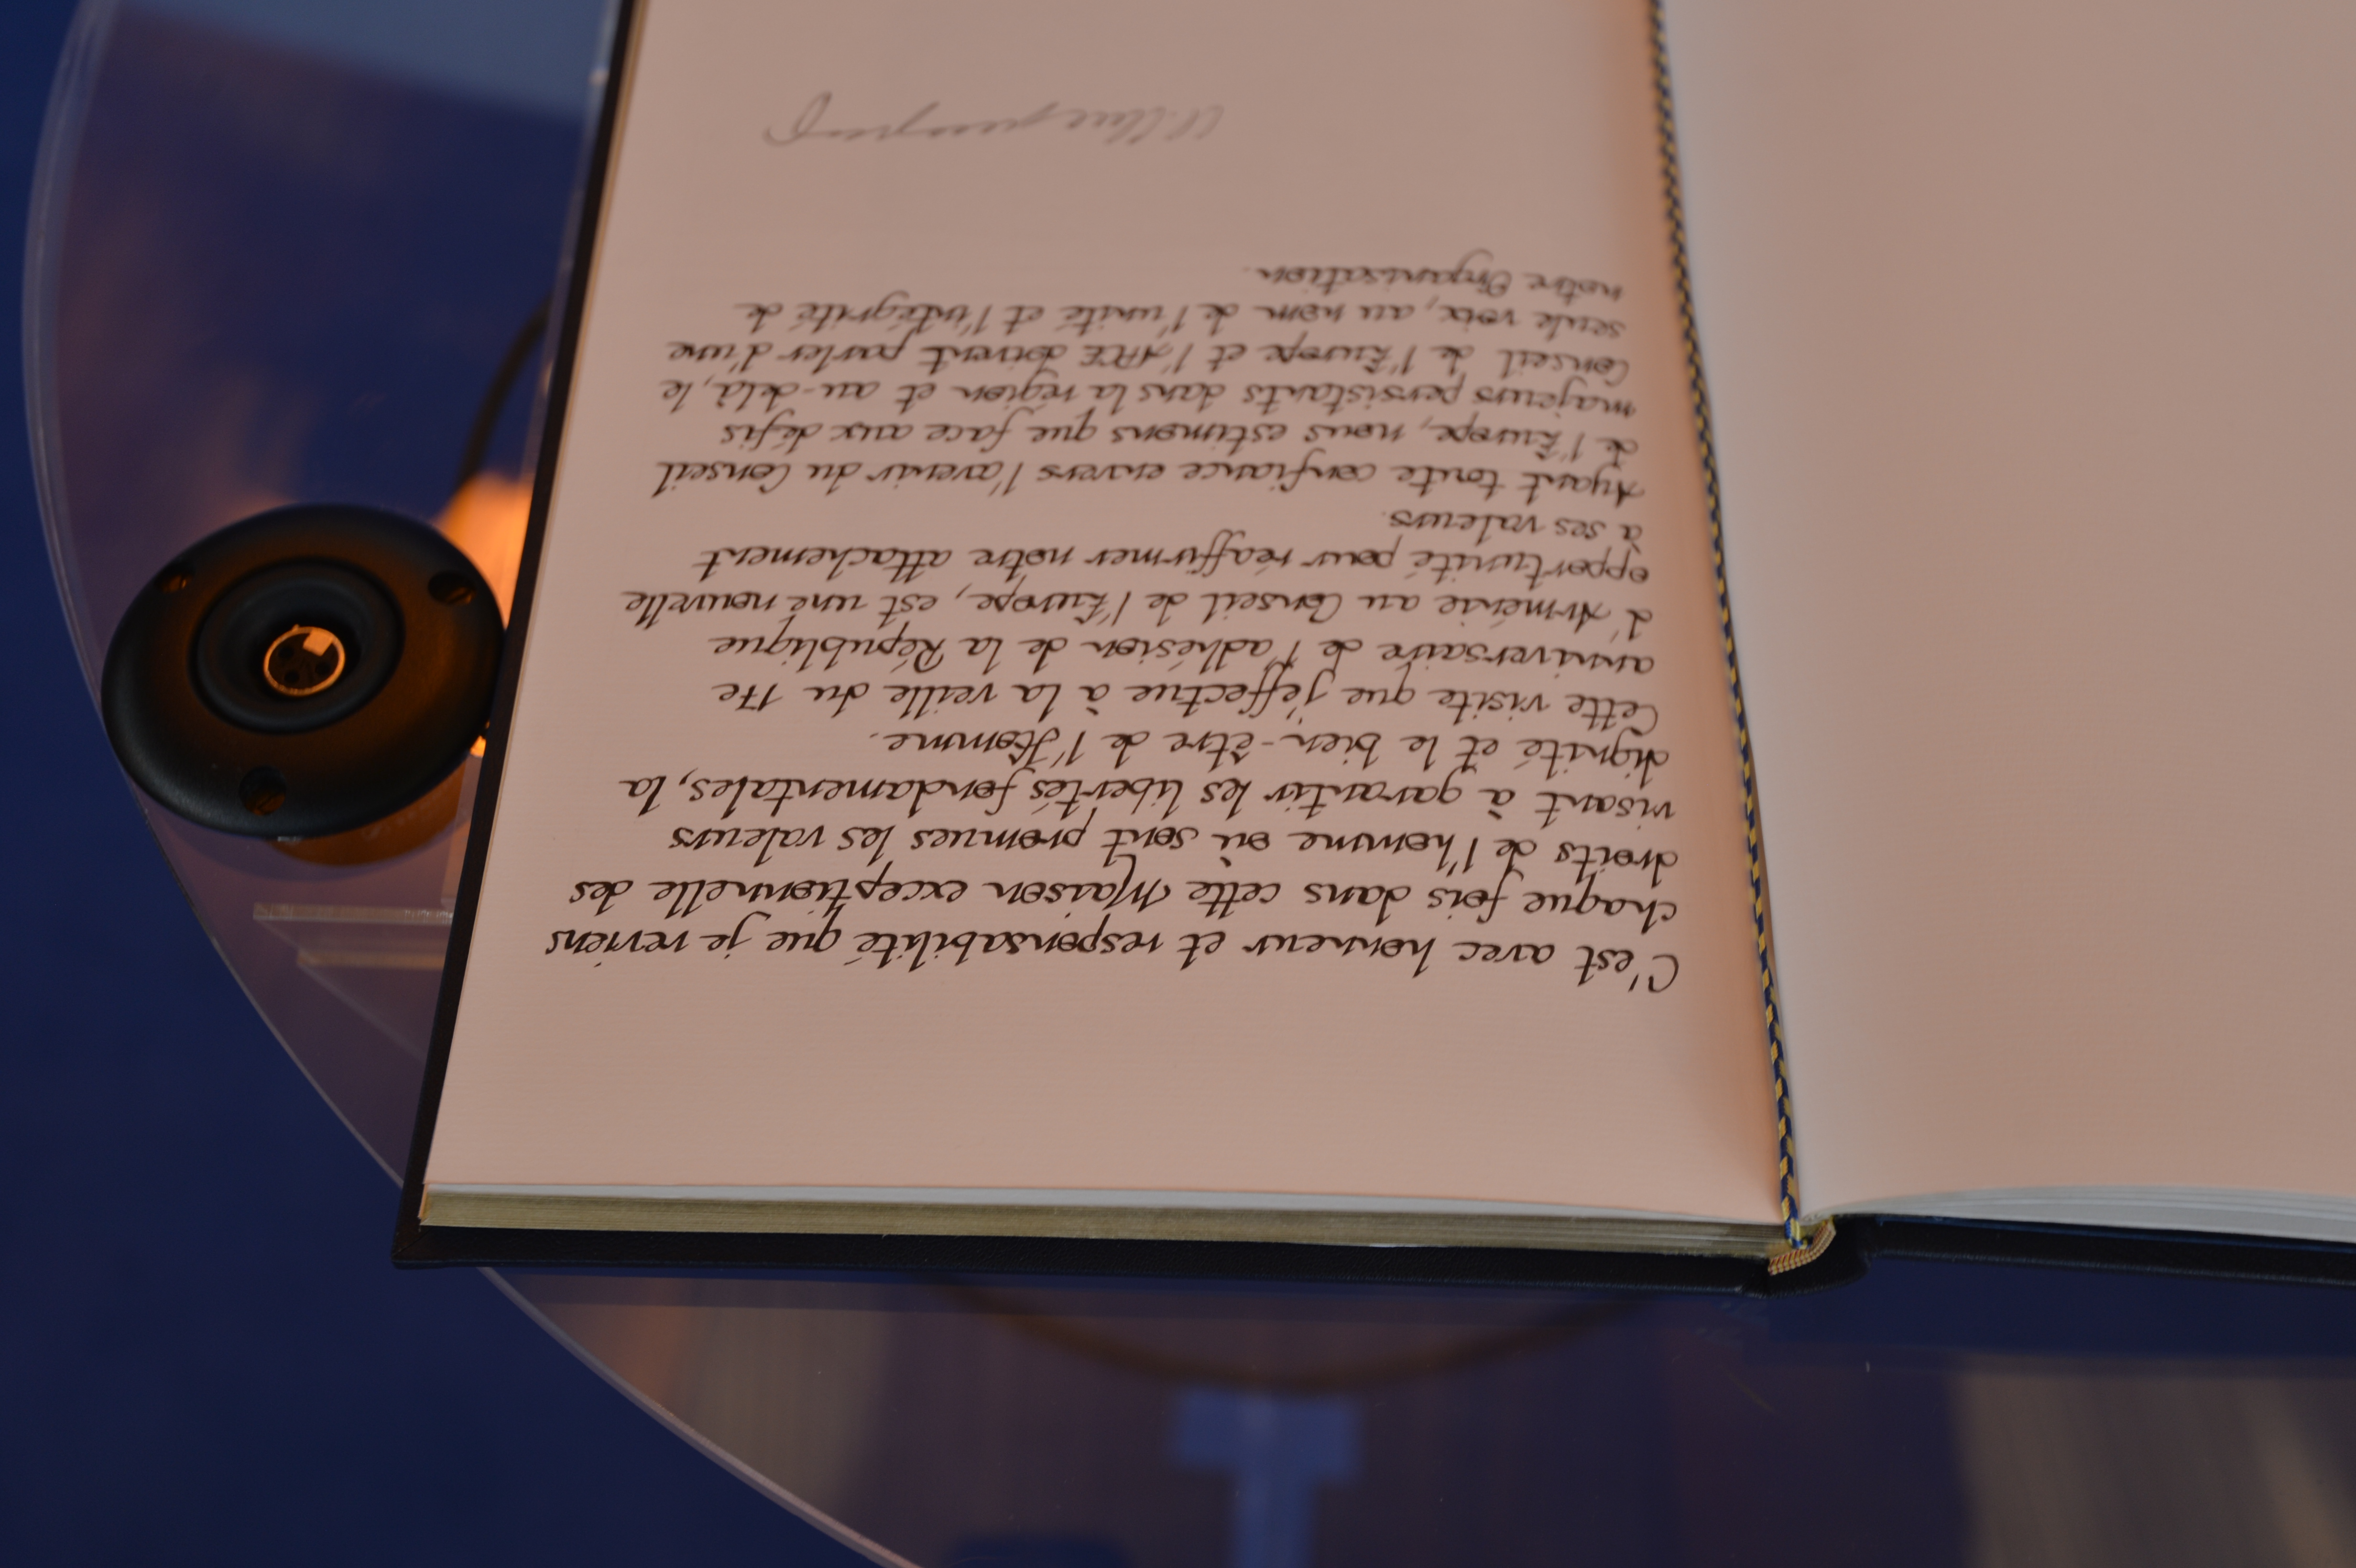 C'est avec honneur et responsabilité que je reviens
chaque fois dans cette Maison exceptionnelle des
droits de l'homme où sont promues les valeurs
visant à garantir les libertés fondamentales, la
dignité et le bien-être de l'Homme.
Cette visite que j'effectue à la veille du 17e
anniversaire de l'adhésion de la République
d'Arménie au Conseil de l'Europe, est une nouvelle
opportunité pour réaffirmer notre attachement
à ses valeurs.
Ayant toute confiance envers l'avenir du Conseil
de l'Europe, nous estimons que face aux défis
majeurs persistants dans la région et au-delà, le
Conseil de l'Europe et l'APCE doivent parler d'une
seule voix, au nom de l'unité et l'intégrité de
notre Organisation.